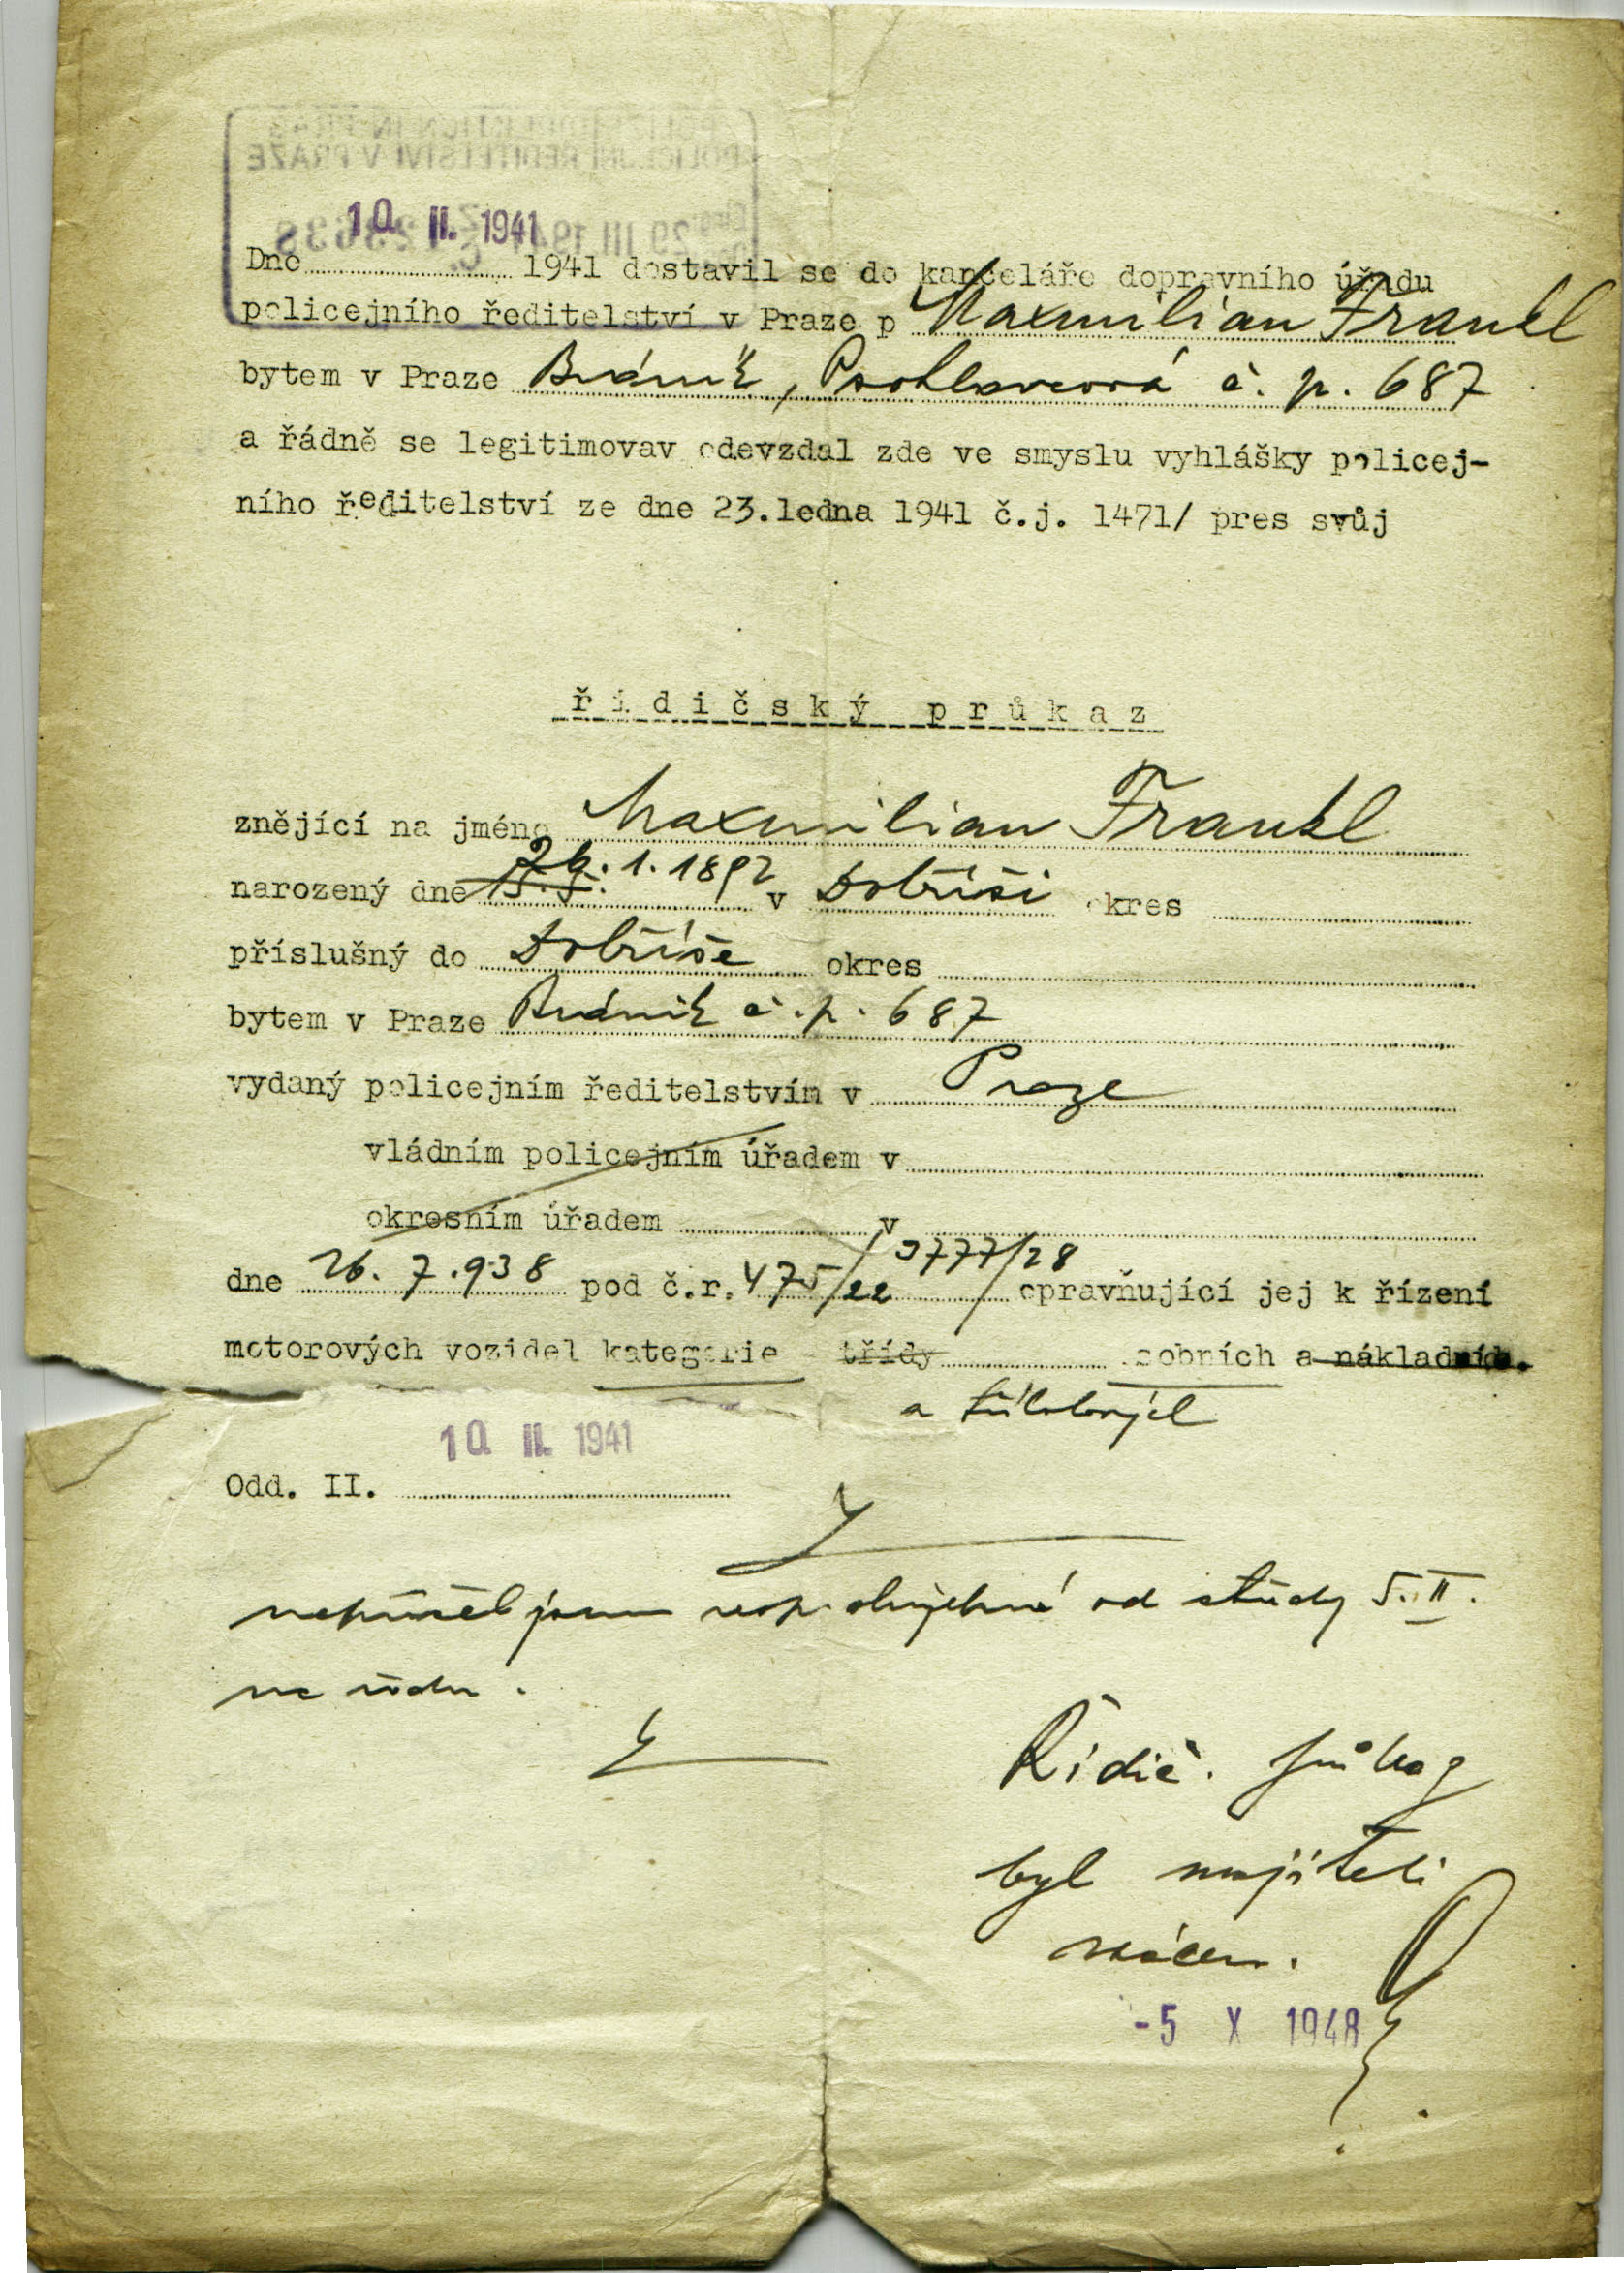 POLIZEIDIREKTION IN PRAG
POLICEJNÍ ŘEDITELSTVÍ V PRAZE
29 III 1941
10. II. 1941
Dne 1941 dostavil se do kanceláře dopravního úřadu
policejního ředitelství v Praze p Maxmilian Frankl
bytem v Praze Braník, č. p. 687
a řádně se legitimovav odevzdal zde ve smyslu vyhlášky policej-
ního ředitelství ze dne 23.ledna 1941 č.j. 1471/ pres svůj
řidičský průkaz
znějící na jméno Maxmilian Frankl
narozený dne 26. 1. 1892 v Dobříši okres
příslušný do Dobříše okres
bytem v Praze Braník č. p. 687
vydaný policejním ředitelstvím v Praze
vládním policejním úřadem v
okresním úřadem v
dne 26. 7. 938 pod č.r. 475/22 opravňující jej k řízení
motorových vozidel kategorie třídy osobních a nákladních.
a
10. II. 1941
Odd. II.
od středy 5. II.
Řidič. průkaz
byl majiteli
vrácen.
-5 X 1948